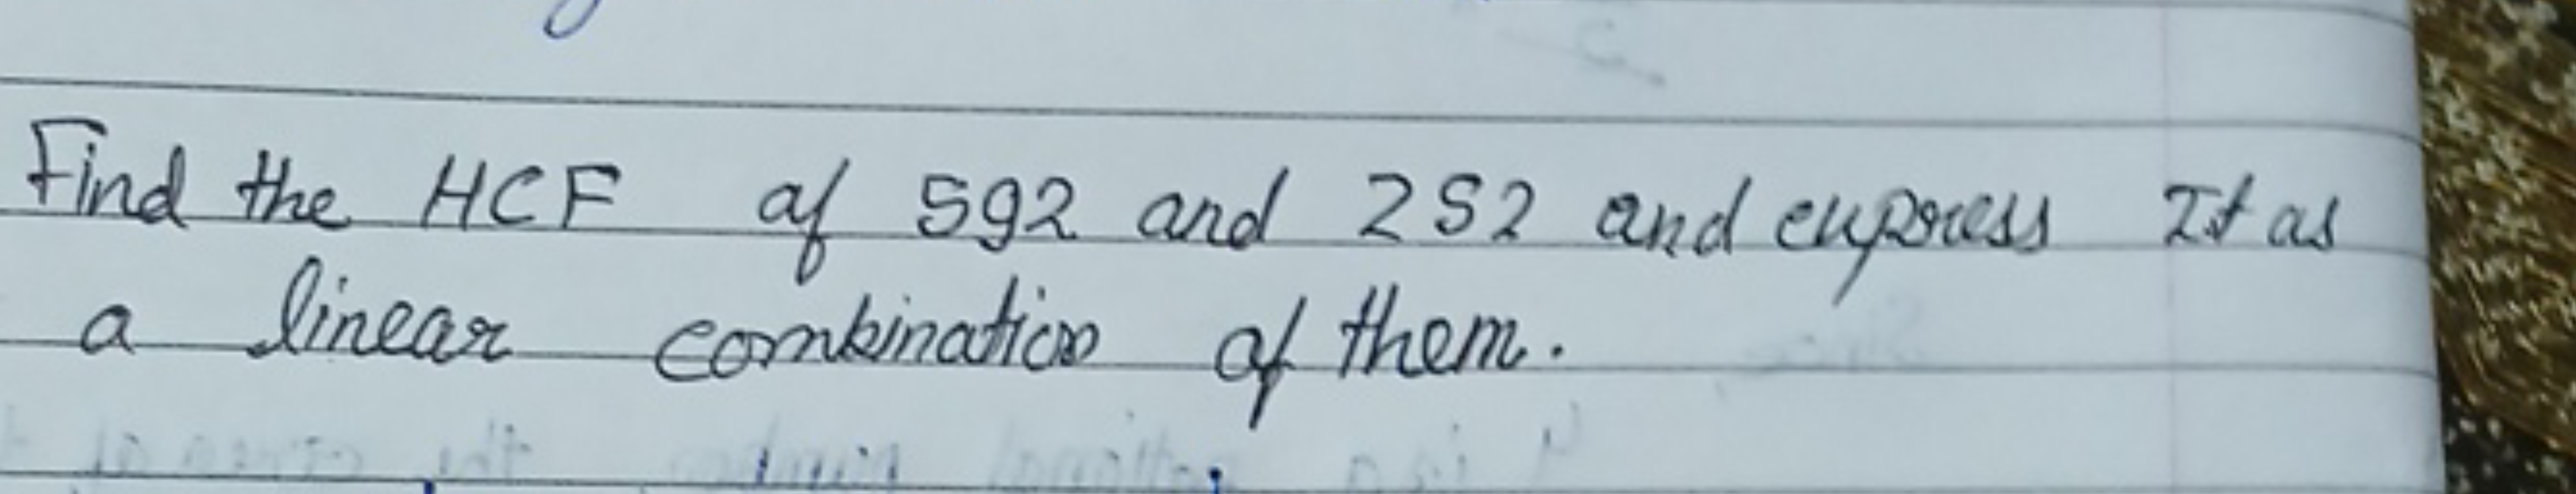 Find the HCF of 592 and 252 and express It as
a linear combination of them.